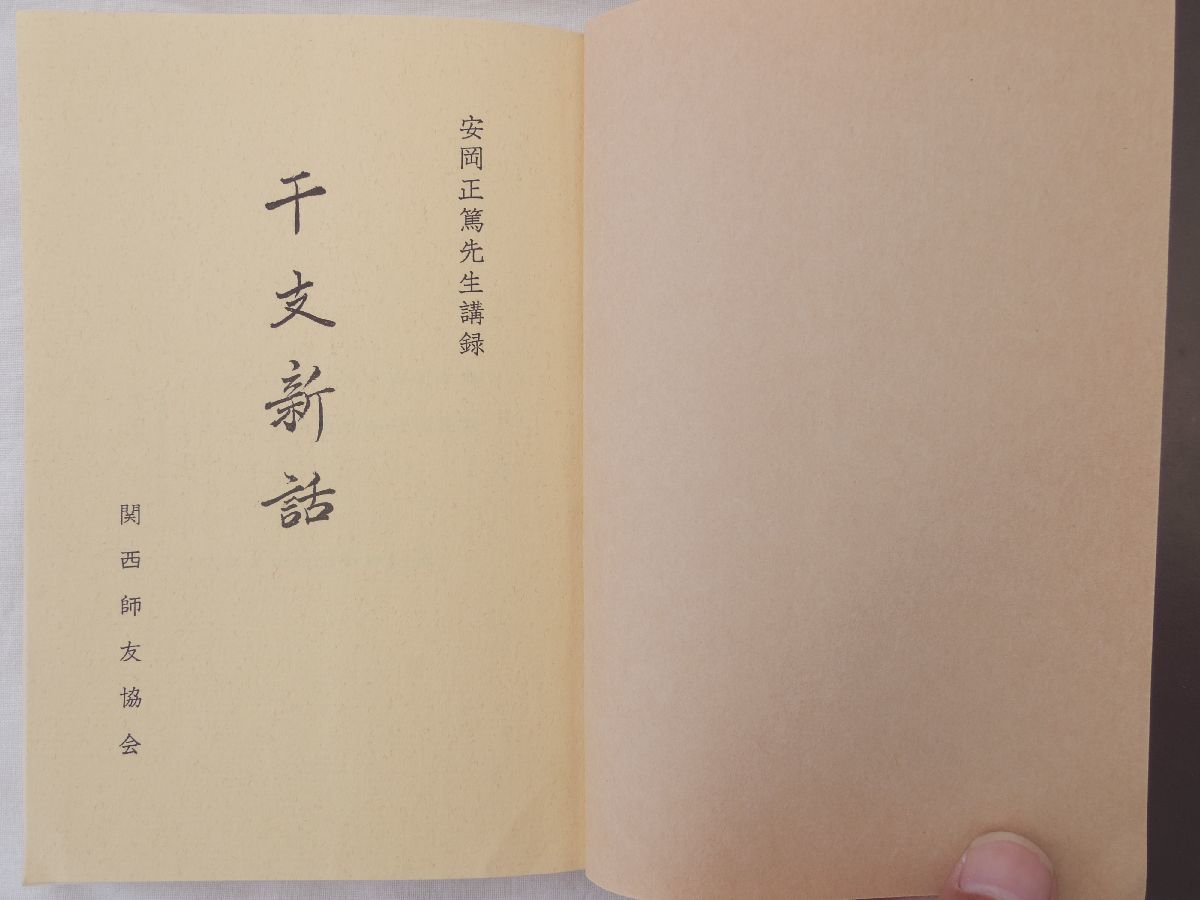 安岡正篤先生講録
干支新話
関西師友協会